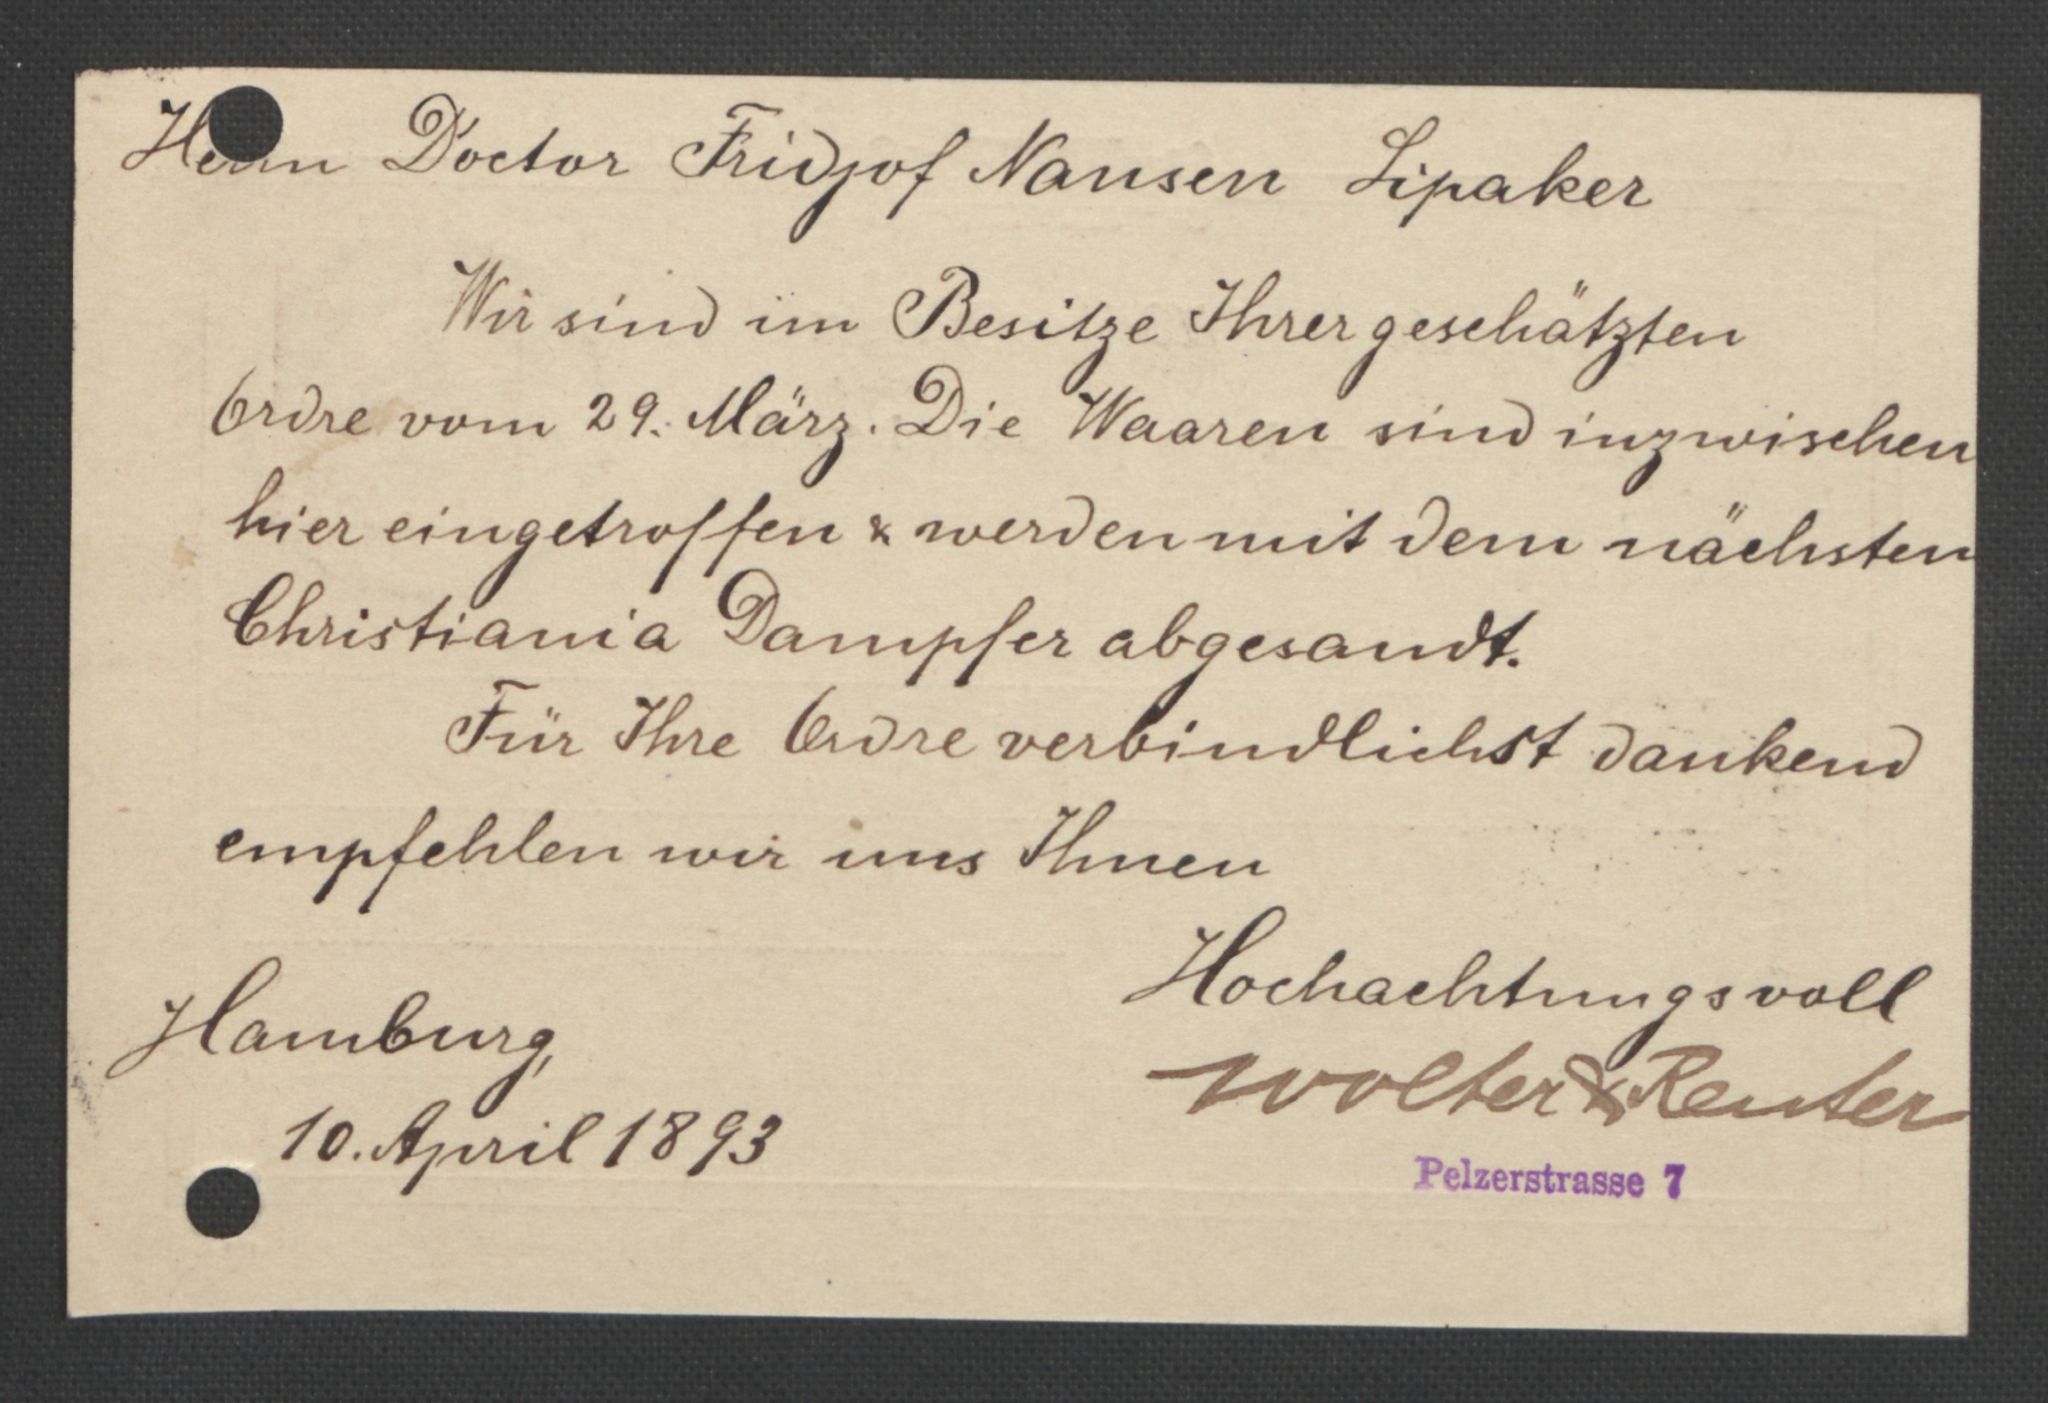 Herrn Doctor Fridjof Nansen Lipaker
Wir sind im Besitze Ihrer geschätzten
Ordre vom 29. März. Die Waaren sind inzwischen
hier eingetroffen & werden mit dem nächsten
Christiania Dampfer abgesandt.
Für Ihre Ordre verbindlichst dankend
empfehlen wir uns Ihnen
Hochachtungsvoll
Hamburg,
Wolter & Reuter
10. April 1893
Pelzerstrasse 7